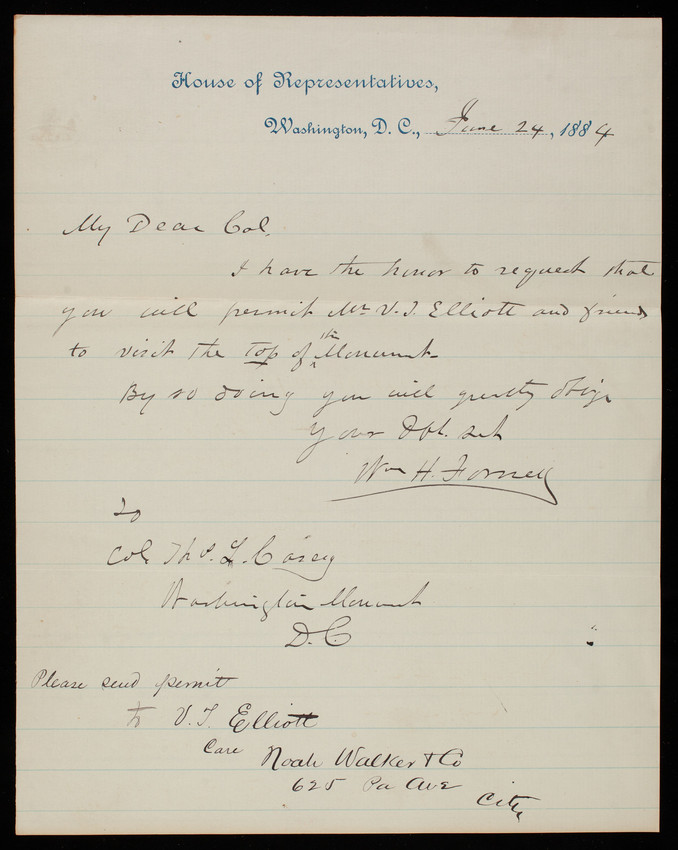 House of Representatives,
Washington, D. C., June 24, 1884
My Dear Col.
I have the honor to request that
you will permit Mr V. T. Elliott and friends
to visit the top of the Monument
By so doing you will greatly oblige
Your Obt. svt
Wm H. Forney
To
Col. Tho s. L. Casey
Washington Monument
D. C.
Please send permit
to V. T. Elliott
Care Noah Walker & Co
625 Pa Ave
City